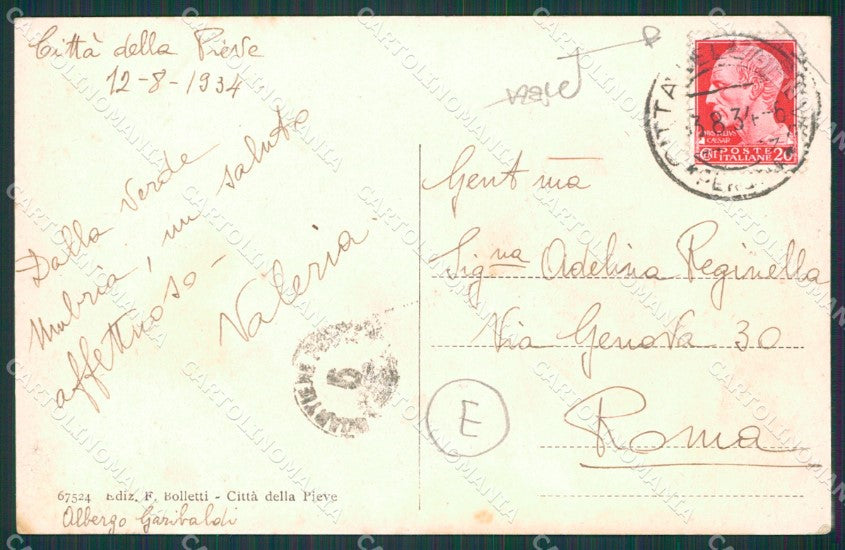 Città della Pieve
12-8-1934
Dalla verde
Umbria, un saluto
affettuoso -
Valeria
67524 Ediz. F. Bolletti - Città della Pieve
Albergo Garibaldi
PORTALETTERE
6
IVLIVS CAESAR
POSTE
ITALIANE 20
Gent ma
Sig.na Adelina Reginella
Via Genova 30
Roma
E
CARTOLINOMANIA